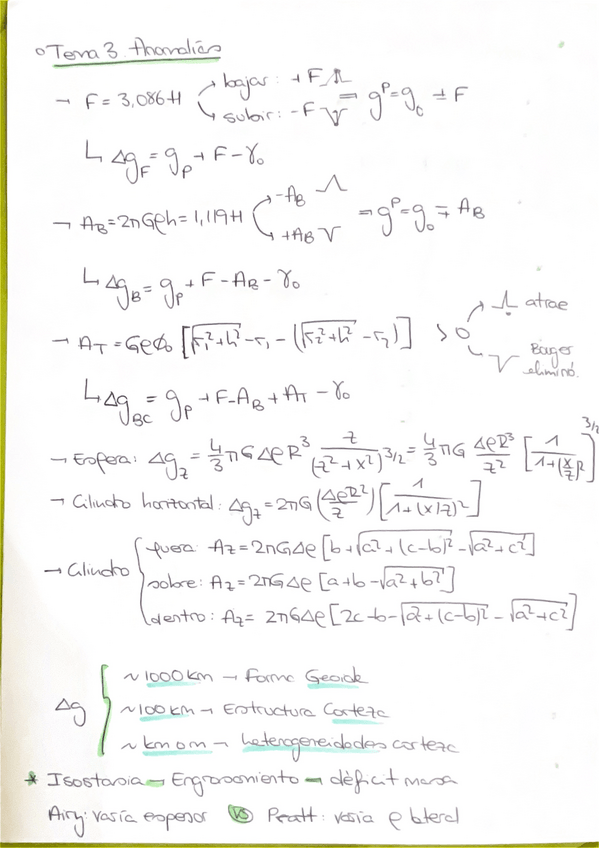 ○ Tema 3 Anomalías
→ F = 3,086H → bajar: +F ⇒ gᴾ = g₀ ± F
→ subir: -F
↳ Δg_F = g_P + F - γ₀
→ A_B = 2πGρh = 1,119H → -A_B ⇒ gᴾ = g₀ ∓ A_B
→ +A_B
↳ Δg_B = g_P + F - A_B - γ₀
→ A_T = Gρϕ₀ [√(r₁²+h²) - r₁ - (√(r₂²+h²) - r₂)] > 0 → atrae
→ eliminó.
↳ Δg_BC = g_P + F - A_B + A_T - γ₀
→ Esfera: Δg_z = 4/3 πGΔρR³ z/(z²+x²)^3/2 = 4/3 πG ΔρR³/z² [1/1+(x/z)²]^3/2
→ Cilindro horizontal: Δg_z = 2πG (ΔρR²/z) [1/1+(x/z)²]
→ Cilindro { fuera: A_z = 2πGΔρ [b + √(a²+(c-b)²) - √(a²+c²)]
sobre: A_z = 2πGΔρ [a+b - √(a²+b²)]
dentro: A_z = 2πGΔρ [2c - b - √(a²+(c-b)²) - √(a²+c²)]
Δg { ~ 1000 km → Forma Geoide
~ 100 km → Estructura Corteza
~ km o m → heterogeneidades corteza
* Isostasia → Engrosamiento → déficit masa
Airy: varía espesor VS Pratt: varía ρ lateral